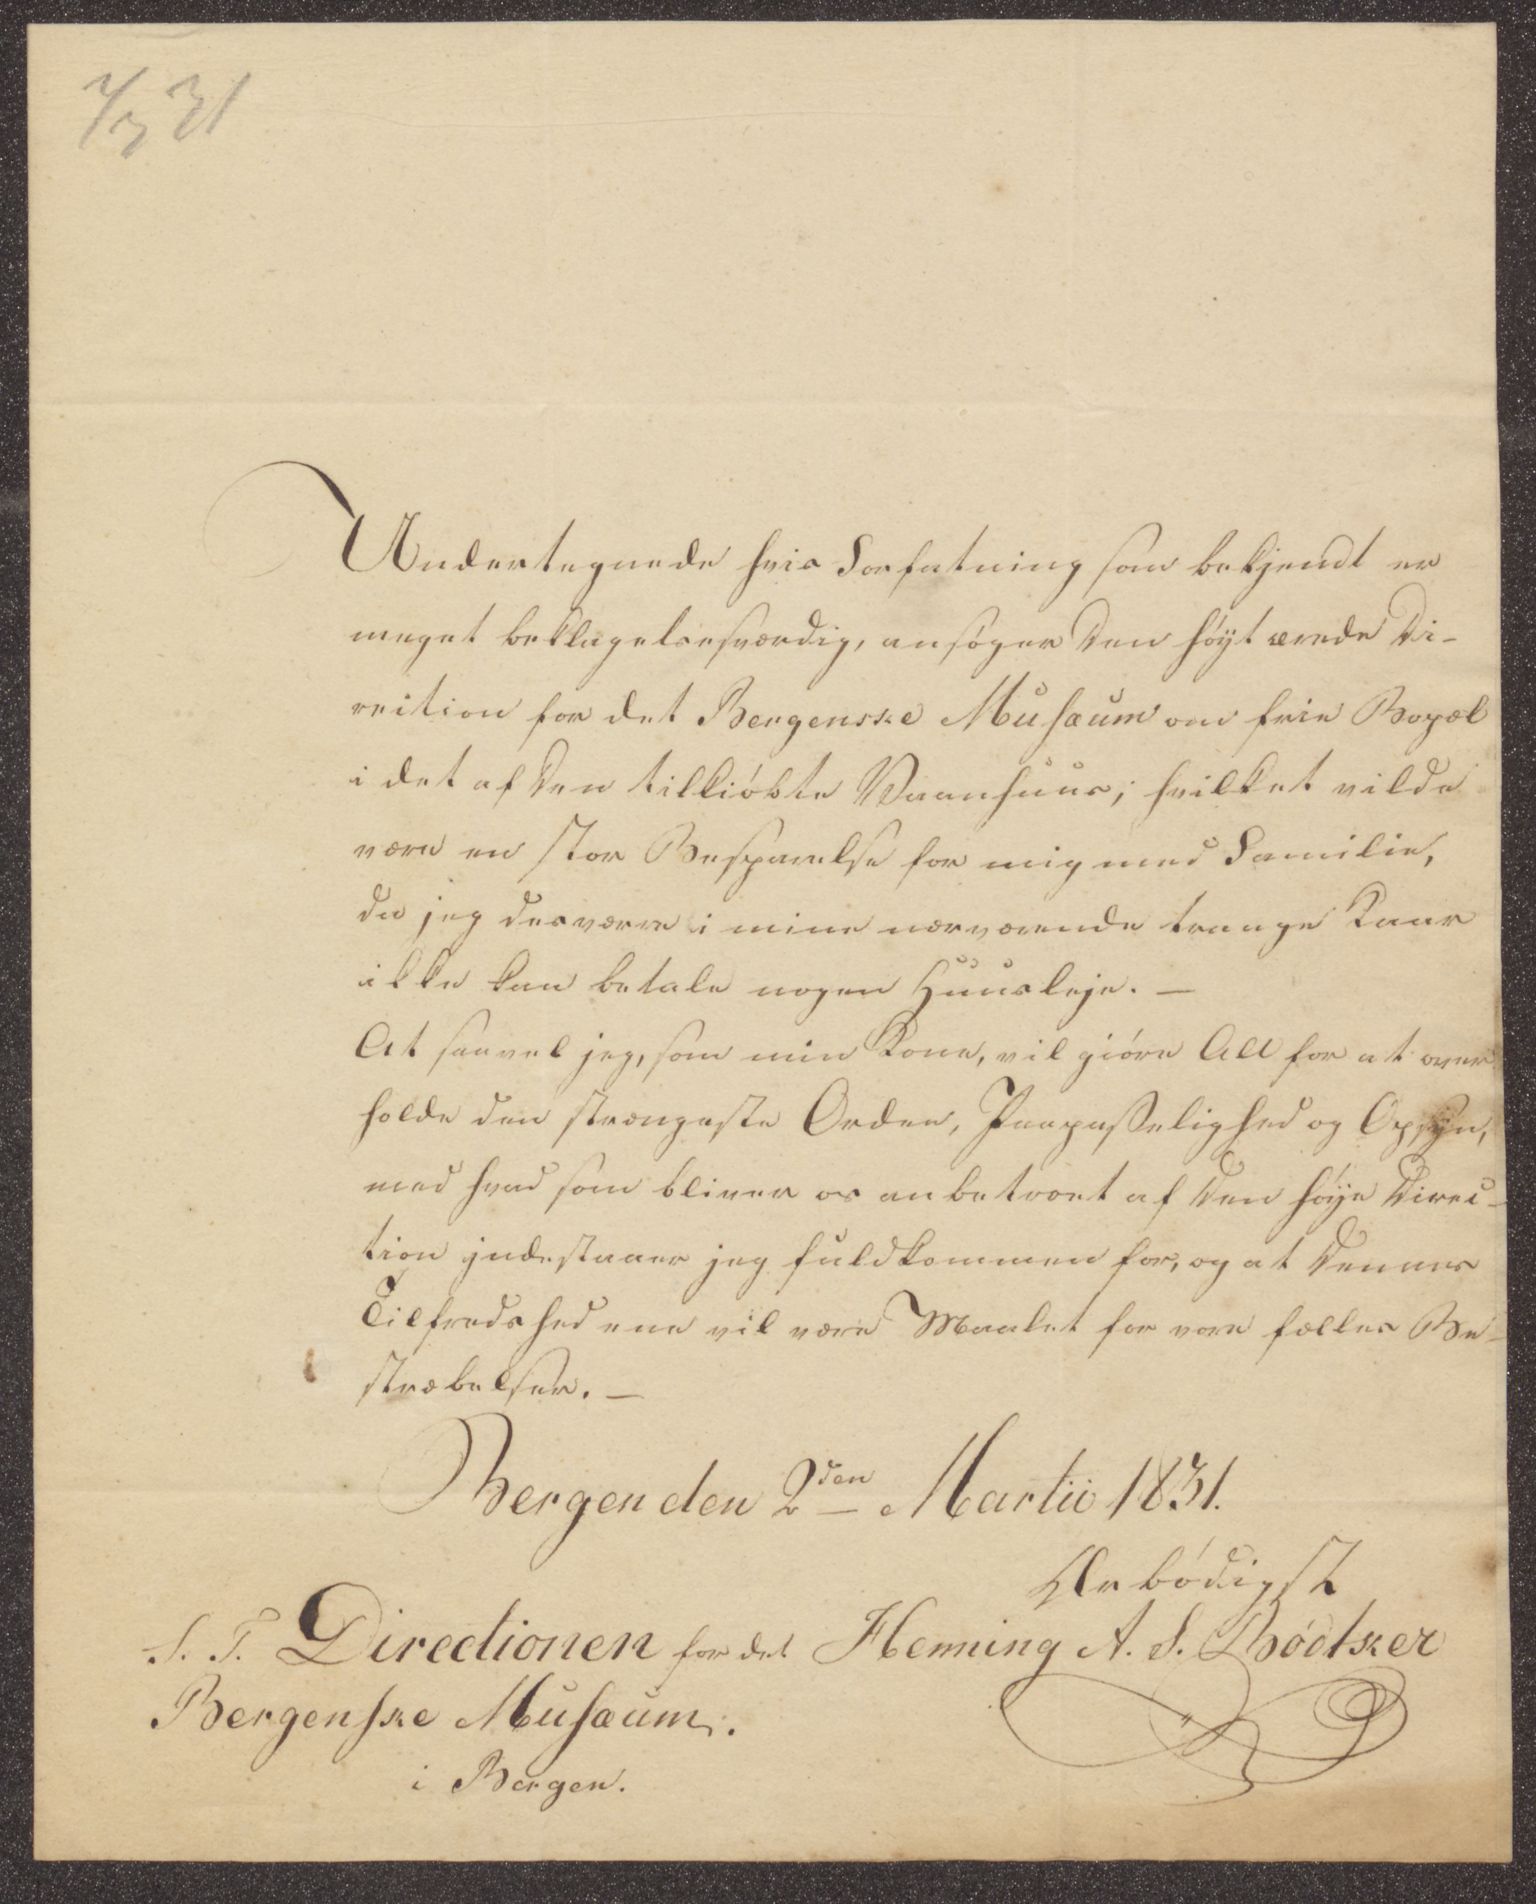 7/3 31
Undertegnede hvis Forfatning som bekjendt er
meget beklagelsesværdig, ansøger Den høÿt ærede Di-
rection for det Bergenske Musæum om frie Bopæl
i det af Den tilkiøbte Vaanhuus; hvilket vilde
være en stor Besparelse for mig med Familie,
da jeg desværre i mine nærværende trange Kaar
ikke kan betale nogen Huusleje. —
At saavel jeg, som min Kone, vil giøre Alt for at over
holde den strængeste Orden, Paapasselighed og Opsÿn,
med hvad som bliver os anbetroet af Den høÿe Direc-
tion indestaaer jeg fuldkommen for, og at Dennes
Tilfredshed ene vil være Maalet for vore fælles Be-
stræbelser. —
Bergen den 2den Martii 1831.
Ærbødigst
S. T. Directionen for det Henning A. S. Bødtker
Bergenske Musæum.
i Bergen.